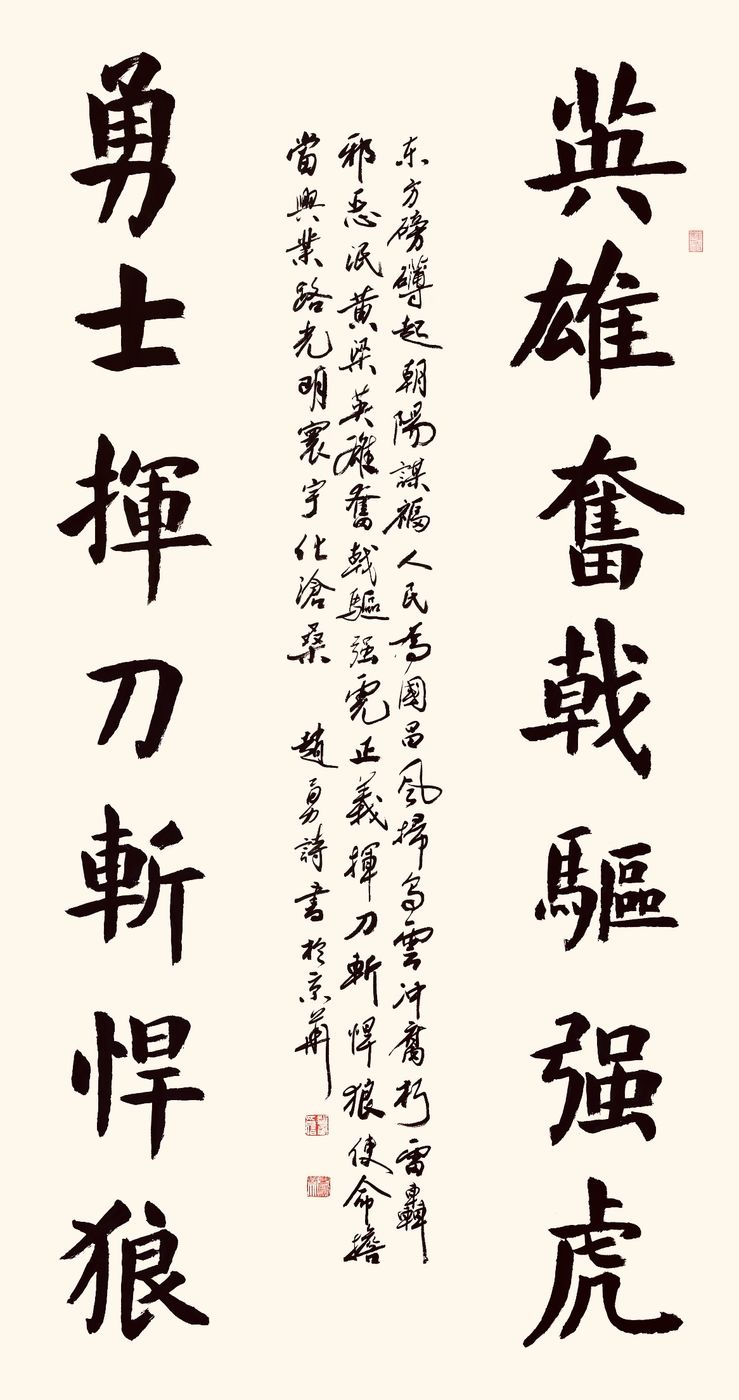 英雄奮戟驅强虎
东方磅礴起朝陽謀福人民為國昌風掃烏雲冲腐朽雷轟
邪惡泯黄粱英雄奮戟驅强虎正義揮刀斬悍狼使命擔
當興業路光明寰宇化滄桑 趙勇詩書於京華
勇士揮刀斬悍狼